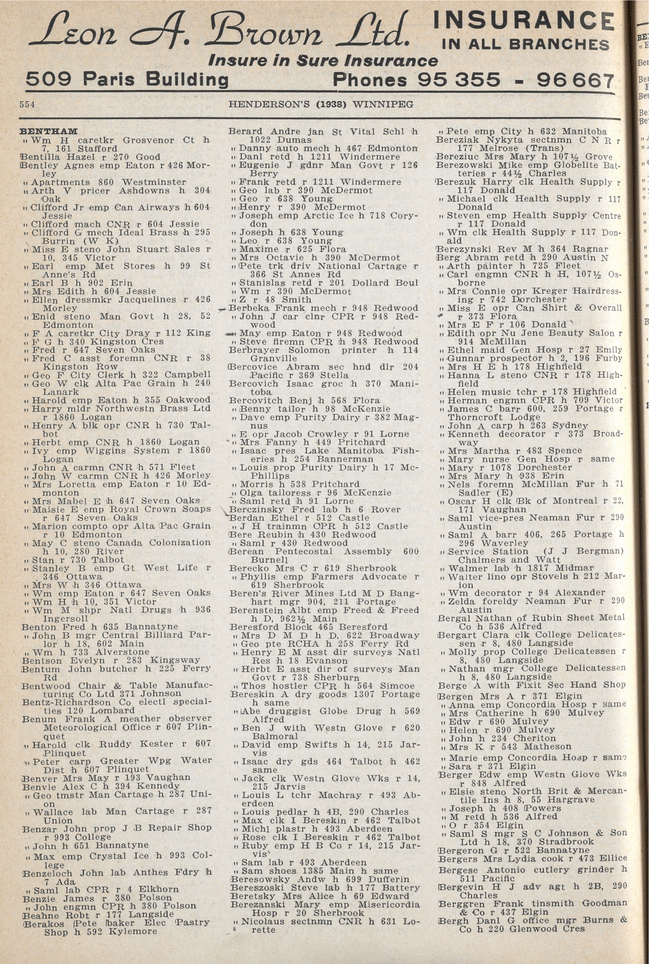 Leon A. Brown Ltd.
INSURANCE
IN ALL BRANCHES
Insure in Sure Insurance
509 Paris Building
Phones 95 355 - 96 667
554
HENDERSON'S (1938) WINNIPEG
BENTHAM
" Wm H caretkr Grosvenor Ct h
7, 161 Stafford
Bentilla Hazel r 270 Good
Bentley Agnes emp Eaton r 426 Mor-
ley
" Apartments 860 Westminster
" Arth V pricer Ashdowns h 304
Oak
" Clifford Jr emp Can Airways h 604
Jessie
" Clifford mach CNR r 604 Jessie
" Clifford G mech Ideal Brass h 295
Burrin (W K)
" Miss E steno John Stuart Sales r
10, 345 Victor
" Earl emp Met Stores h 99 St
Anne's Rd
" Earl B h 902 Erin
" Mrs Edith h 604 Jessie
" Ellen dressmkr Jacquelines r 426
Morley
" Enid steno Man Govt h 28, 52
Edmonton
" F A caretkr City Dray r 112 King
" F G h 340 Kingston Cres
" Fred r 647 Seven Oaks
" Fred C asst foremn CNR r 38
Kingston Row
" Geo F City Clerk h 322 Campbell
" Geo W clk Alta Pac Grain h 240
Lanark
" Harold emp Eaton h 355 Oakwood
" Harry mldr Northwestn Brass Ltd
r 1860 Logan
" Henry A blk opr CNR h 730 Tal-
bot
" Herbt emp CNR h 1860 Logan
" Ivy emp Wiggins System r 1860
Logan
" John A carmn CNR h 571 Fleet
" John W carmn CNR h 426 Morley
" Mrs Loretta emp Eaton r 10 Ed-
monton
" Mrs Mabel E h 647 Seven Oaks
" Maisie E emp Royal Crown Soaps
r 647 Seven Oaks
" Marion compto opr Alta Pac Grain
r 10 Edmonton
" May C steno Canada Colonization
h 10, 280 River
" Stan r 730 Talbot
" Stanley B emp Gt West Life r
346 Ottawa
" Mrs W h 346 Ottawa
" Wm emp Eaton r 647 Seven Oaks
" Wm H h 10, 351 Victor
" Wm M shpr Natl Drugs h 936
Ingersoll
Benton Fred h 635 Bannatyne
" John B mgr Central Billiard Par-
lor h 18, 602 Main
" Wm h 733 Alverstone
Bentson Evelyn r 283 Kingsway
Bentum John butcher h 225 Ferry
Rd
Bentwood Chair & Table Manufac-
turing Co Ltd 371 Johnson
Bentz-Richardson Co electl special-
ties 120 Lombard
Benum Frank A meather observer
Meteorological Office r 607 Plin-
quet
" Harold clk Ruddy Kester r 607
Plinquet
" Peter carp Greater Wpg Water
Dist h 607 Plinquet
Benver Mrs May r 193 Vaughan
Benvie Alex C h 394 Kennedy
" Geo tmstr Man Cartage h 287 Uni-
on
" Wallace lab Man Cartage r 287
Union
Benzar John prop J B Repair Shop
r 993 College
" John h 651 Bannatyne
" Max emp Crystal Ice h 993 Col-
lege
Benzeloch John lab Anthes Fdry h
7 Ada
" Saml lab CPR r 4 Elkhorn
Benzie James r 380 Polson
" John engmn CPR h 380 Polson
Beahne Robt r 177 Langside
Berakos Pete baker Elec Pastry
Shop h 592 Kylemore
Berard Andre jan St Vital Schl h
1022 Dumas
" Danny auto mech h 467 Edmonton
" Danl retd h 1211 Windermere
" Eugenie J gdnr Man Govt r 126
Berry
" Frank retd r 1211 Windermere
" Geo lab r 390 McDermot
" Geo r 638 Young
" Henry r 390 McDermot
" Joseph emp Arctic Ice h 718 Cory-
don
" Joseph h 638 Young
" Leo r 638 Young
" Maxime r 625 Flora
" Mrs Octavie h 390 McDermot
" Pete trk driv National Cartage r
366 St Annes Rd
" Stanislas retd r 201 Dollard Boul
" Wm r 390 McDermot
" Z r 48 Smith
Berbeka Frank mech r 948 Redwood
" John J car clnr CPR r 948 Red-
wood
" May emp Eaton r 948 Redwood
" Steve firemn CPR h 948 Redwood
Berbrayer Solomon printer h 114
Granville
Bercovice Abram sec hnd dlr 204
Pacific r 369 Stella
Bercovich Isaac groc h 370 Mani-
toba
Bercovitch Benj h 568 Flora
" Benny tailor h 98 McKenzie
" Dave emp Purity Dairy r 382 Mag-
nus
" E opr Jacob Crowley r 91 Lorne
" Mrs Fanny h 449 Pritchard
" Isaac pres Lake Manitoba Fish-
eries h 254 Bannerman
" Louis prop Purity Dairy h 17 Mc-
Phillips
" Morris h 538 Pritchard
" Olga tailoress r 96 McKenzie
" Saml retd h 91 Lorne
Berczinsky Fred lab h 6 Rover
Berdan Ethel r 512 Castle
" J H trainmn CPR h 512 Castle
Bere Reubin h 430 Redwood
" Saml r 430 Redwood
Berean Pentecostal Assembly 600
Burnell
Berecko Mrs C r 619 Sherbrook
" Phyllis emp Farmers Advocate r
619 Sherbrook
Beren's River Mines Ltd M D Bang-
hart mgr 904, 211 Portage
Berenstein Albt emp Freed & Freed
h D, 962½ Main
Beresford Block 465 Beresford
" Mrs D M D h D, 622 Broadway
" Geo pte RCHA h 358 Ferry Rd
" Henry E M asst dir surveys Natl
Res h 18 Evanson
" Herbt E asst dir of surveys Man
Govt r 738 Sherburn
" Thos hostler CPR h 564 Simcoe
Bereskin A dry goods 1307 Portage
h same
" Abe druggist Globe Drug h 569
Alfred
" Ben J with Westn Glove r 620
Balmoral
" David emp Swifts h 14, 215 Jar-
vis
" Isaac dry gds 464 Talbot h 462
same
" Jack clk Westn Glove Wks r 14,
215 Jarvis
" Louis L tchr Machray r 493 Ab-
erdeen
" Louis pedlar h 4B, 290 Charles
" Max clk I Bereskin r 462 Talbot
" Michl plastr h 493 Aberdeen
" Rose clk I Bereskin r 462 Talbot
" Ruby emp H B Co r 14, 215 Jar-
vis
" Sam lab r 493 Aberdeen
" Sam shoes 1385 Main h same
Beresowsky Andw h 699 Dufferin
Bereszoski Steve lab h 177 Battery
Beretsky Mrs Alice h 69 Edward
Berezanski Mary emp Misericordia
Hosp r 20 Sherbrook
" Nicolaus sectnmn CNR h 631 Lo-
rette
" Pete emp City h 632 Manitoba
Bereziak Nykyta sectnmn C N R r
177 Melrose (Trans)
Bereziuc Mrs Mary h 107½ Grove
Berezowski Mike emp Globelite Bat-
teries r 44½ Charles
Berezuk Harry clk Health Supply r
117 Donald
" Michael clk Health Supply r 117
Donald
" Steven emp Health Supply Centre
r 117 Donald
" Wm clk Health Supply r 117 Don-
ald
Berezynski Rev M h 364 Ragnar
Berg Abram retd h 290 Austin N
" Arth painter h 725 Fleet
" Carl engmn CNR h H, 107½ Os-
borne
" Mrs Connie opr Kreger Hairdress-
ing r 742 Dorchester
" Miss E opr Can Shirt & Overall
r 373 Flora
" Mrs E F r 106 Donald
" Edith opr Nu Jene Beauty Salon r
914 McMillan
" Ethel maid Gen Hosp r 27 Emily
" Gunnar prospector h 2, 196 Furby
" Mrs H E h 178 Highfield
" Hanna L steno CNR r 178 High-
field
" Helen music tchr r 178 Highfield
" Herman engmn CPR h 709 Victor
" James C barr 600, 259 Portage r
Thorncroft Lodge
" John A carp h 263 Sydney
" Kenneth decorator r 373 Broad-
way
" Mrs Martha r 483 Spence
" Mary nurse Gen Hosp r same
" Mary r 1078 Dorchester
" Mrs Mary h 938 Erin
" Nels foremn McMillan Fur h 71
Sadler (E)
" Oscar H clk Bk of Montreal r 22,
171 Vaughan
" Saml vice-pres Neaman Fur r 290
Austin
" Saml A barr 406, 265 Portage h
296 Waverley
" Service Station (J J Bergman)
Chalmers and Watt
" Walmer lab h 1817 Midmar
" Walter lino opr Stovels h 212 Mar-
ion
" Wm decorator r 94 Alexander
" Zelda foreldy Neaman Fur r 290
Austin
Bergal Nathan of Rubin Sheet Metal
Co h 536 Alfred
Bergart Clara clk College Delicates-
sen r 8, 480 Langside
" Molly prop College Delicatessen r
8, 480 Langside
" Nathan mgr College Delicatessen
h 8, 480 Langside
Berge A with Fixit Sec Hand Shop
Bergen Mrs A r 371 Elgin
" Anna emp Concordia Hosp r same
" Mrs Catherine h 690 Mulvey
" Edw r 690 Mulvey
" Helen r 690 Mulvey
" John h 234 Cheriton
" Mrs K r 543 Matheson
" Marie emp Concordia Hosp r same
" Sara r 371 Elgin
Berger Edw emp Westn Glove Wks
r 848 Alfred
" Elsie steno North Brit & Mercan-
tile Ins h 8, 55 Hargrave
" Joseph h 408 Powers
" M retd h 536 Alfred
" O r 354 Elgin
" Saml S mgr S C Johnson & Son
Ltd h 18, 370 Stradbrook
Bergeron G r 522 Bannatyne
Bergers Mrs Lydia cook r 473 Ellice
Bergese Antonio cutlery grinder h
511 Pacific
Bergevin H J adv agt h 2B, 290
Charles
Berggren Frank tinsmith Goodman
& Co r 437 Elgin
Bergh Danl G office mgr Burns &
Co h 220 Glenwood Cres